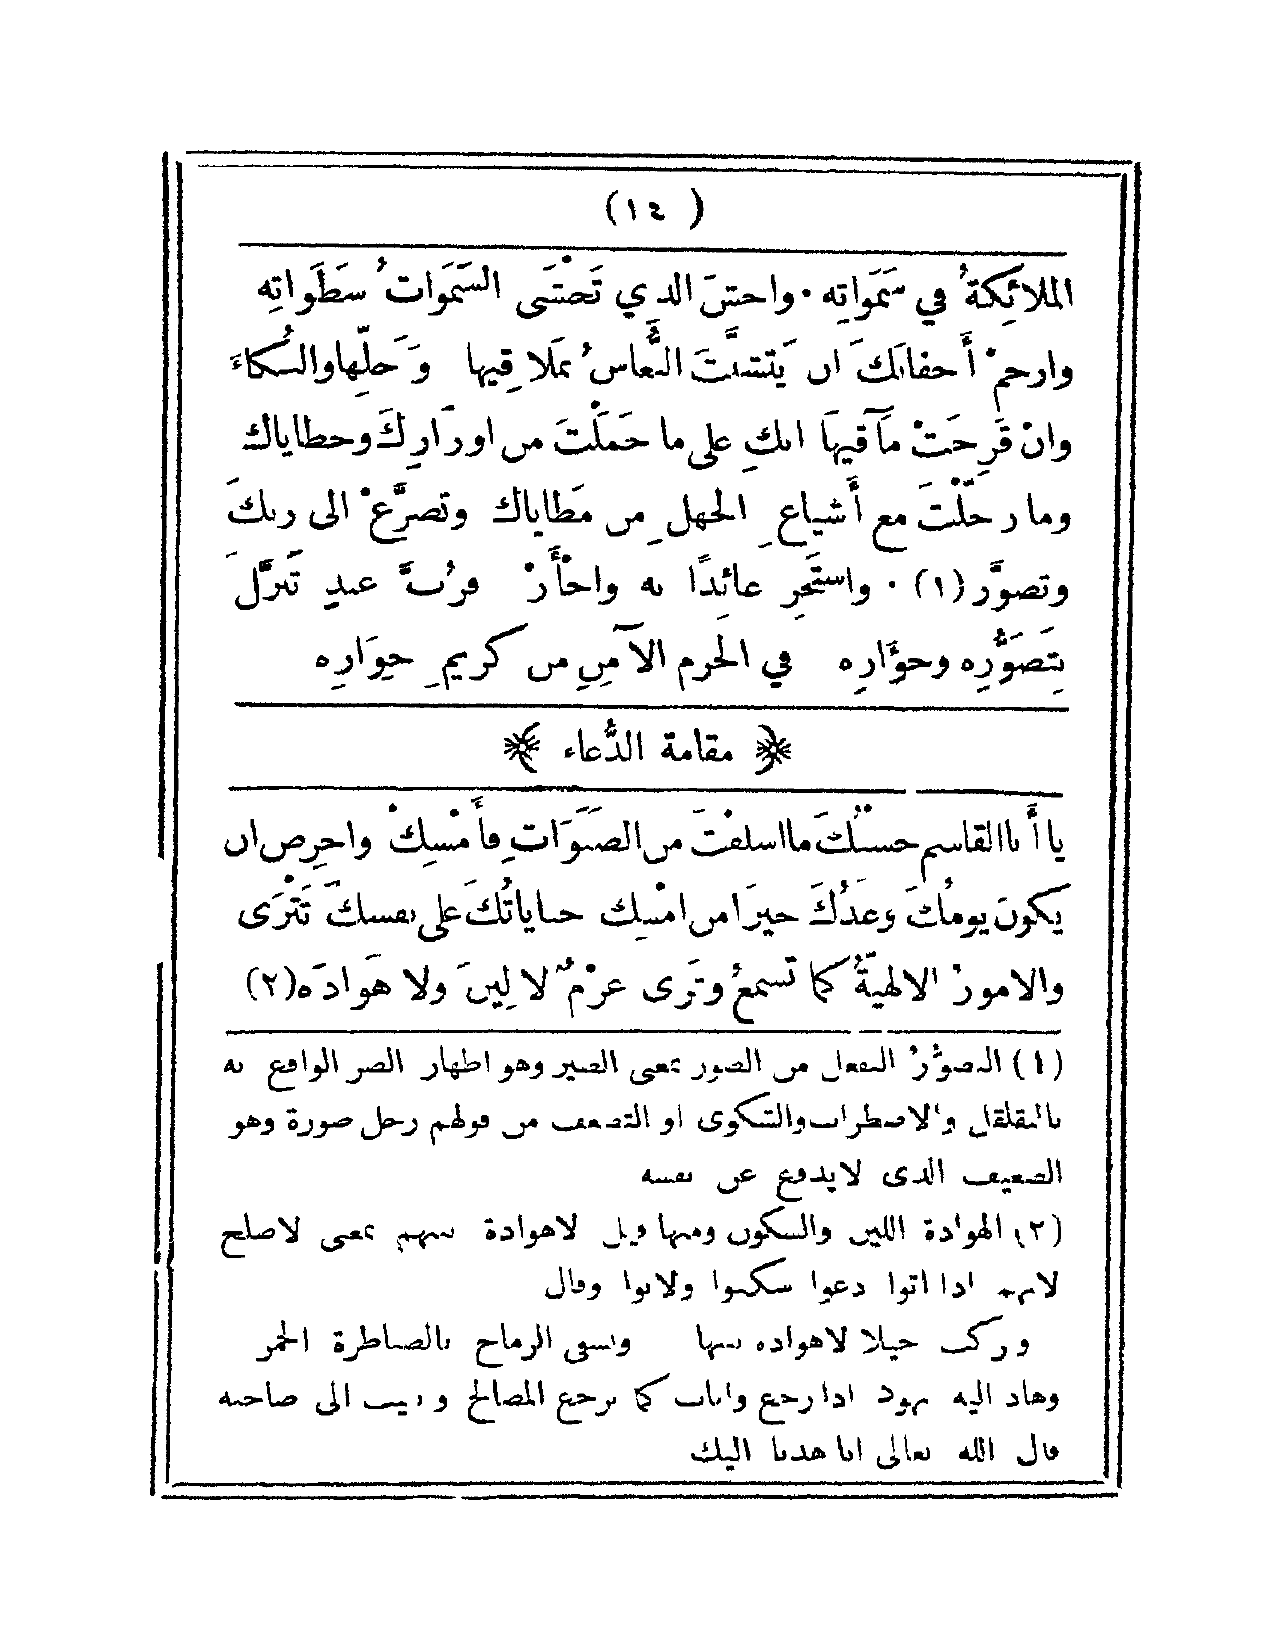 (١٤)
الملائِكةُ في سَمَوَاتِه · واخشَ الذي تَخْشَى السَّمَوَاتُ سَطَوَاتِه
وارحمْ أَجفانَكَ أن يَتشبَّثَ النُّعاسُ بمَلاقِيها وَخَلِّها والبُكاءَ
وانْ قَرِحَتْ مآقيهَا ابكِ على ما حَمَلْتَ من اوزَارِكَ وخطاياك
وما رحَّلْتَ مع أَشياعِ الجهلِ من مَطاياك وتضرَّعْ الى ربكَ
وتضوَّر (١) · واستَجِر عائِذًا به واجْأَرْ فرُبَّ عبدٍ نَزَّلَ
بِتَضَوُّرِه وجؤَارِه في الحرم الآمِنِ من كريمِ جِوَارِه
مقامة الدُّعاء
يا أَبا القاسم حسْبُكَ ما اسلفْتَ من الصَبَوَاتِ فأَمْسِكْ واحرِص ان
يكونَ يومُكَ وغَدُكَ خيرًا من امْسِك جناياتُكَ على نفسكَ تَتْرَى
والامورُ الالهيّةُ كما تَسمعُ وتَرى عزْمٌ لا لِينَ ولا هَوادَه (٢)
(١) التضوُّرُ التفعل من الضور بمعنى الضير وهو اظهار الضر الواقع به
بالتقلقل والاضطراب والشكوى او التضعف من قولهم رجل ضورة وهو
الضعيف الذى لايدفع عن نفسه
(٢) الهوادة اللين والسكون ومنها قيل لاهوادة بينهم بمعنى لاصلح
لانهم اذا اتوا دعوا سكنوا ولانوا وقال
وركب خيلا لاهواده بينها وتسقى الرماح بالضياطرة الحمر
وهاد اليه يهود اذا رجع واناب كما يرجع المصالح وينيب الى صاحبه
قال الله تعالى انا هدنا اليك